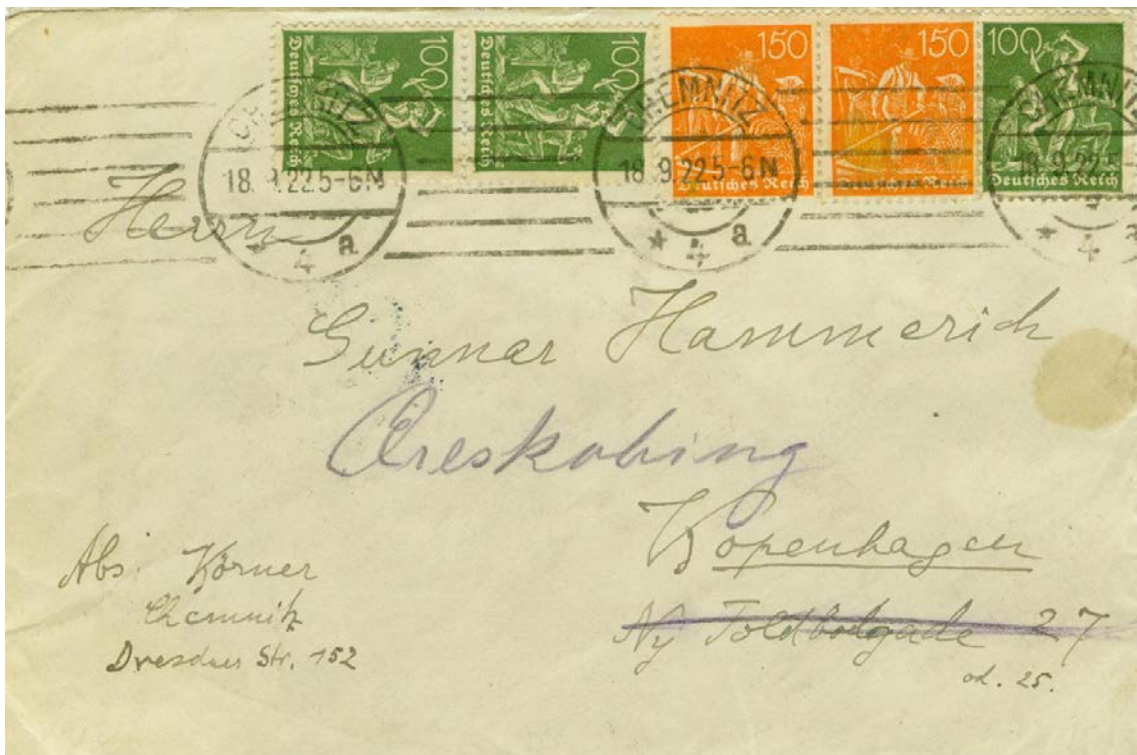 100 Deutsches Reich
100 Deutsches Reich
150 Deutsches Reich
150 Deutsches Reich
100 Deutsches Reich
CHEMNITZ 18.9.22 5-6N * 4 a
CHEMNITZ 18.9.22 5-6N * 4 a
CHEMNITZ 18.9.22 5 * 4 a
Herrn
Gunnar Hammerich
Öreskobing
Kopenhagen
Ny Toldbodgade 27
od. 25.
Abs. Körner
Chemnitz
Dresdner Str. 152